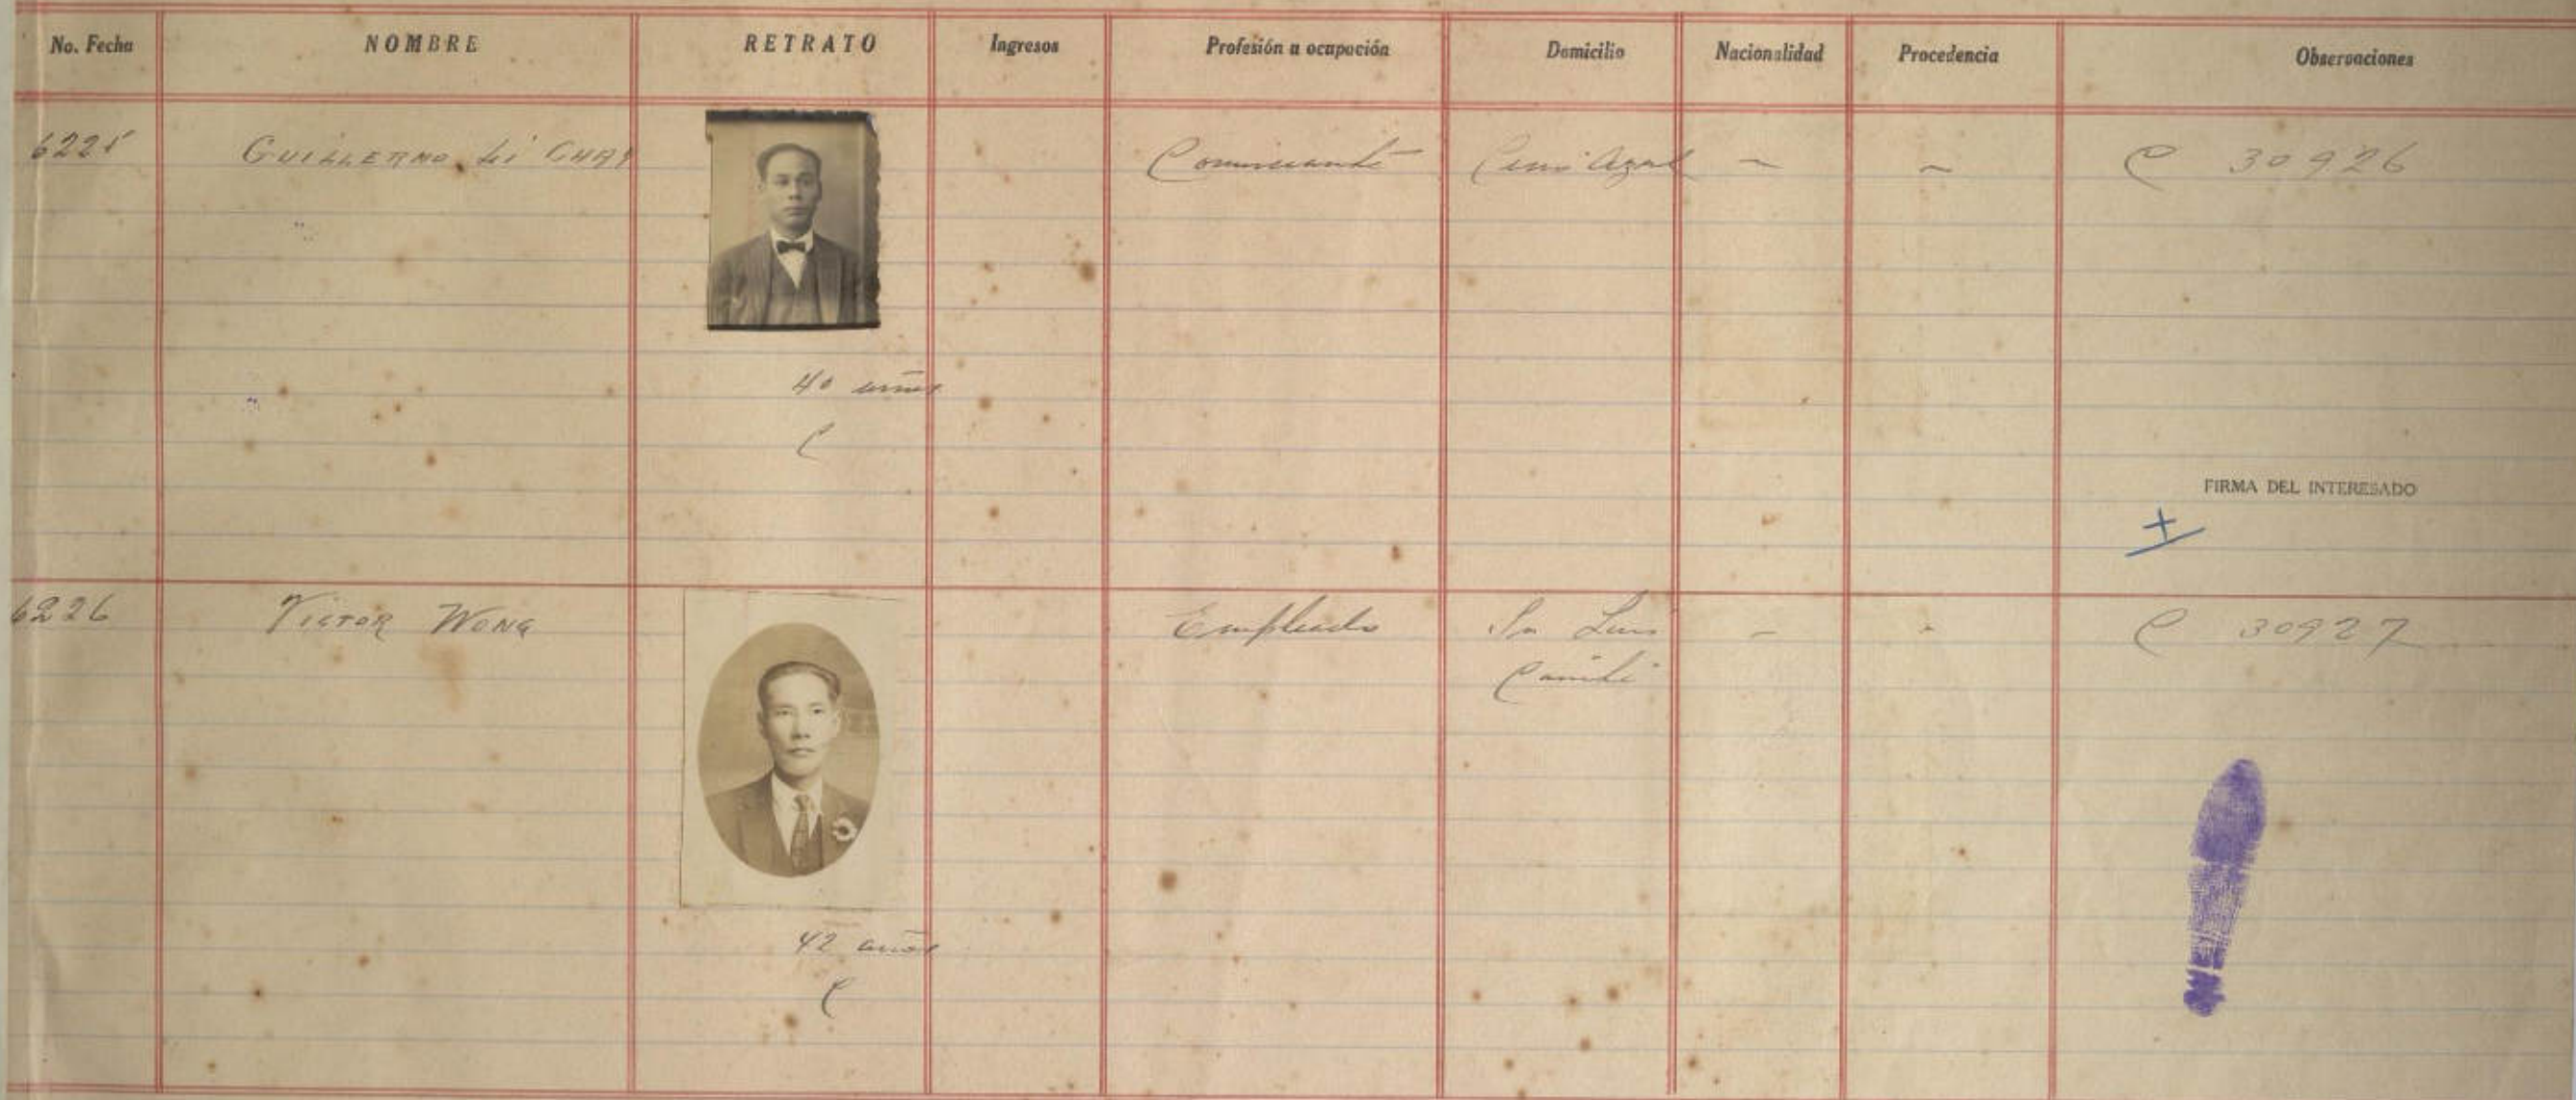 No. Fecha NOMBRE RETRATO Ingresos Profesión u ocupación Domicilio Nacionalidad Procedencia Observaciones
6225 GUILLERMO Li CHAY Comerciante ~ ~ C 30926
40 años
C
FIRMA DEL INTERESADO
+
6226 VICTOR WONG Empleado Sn Luis - - C 30927
42 años
C